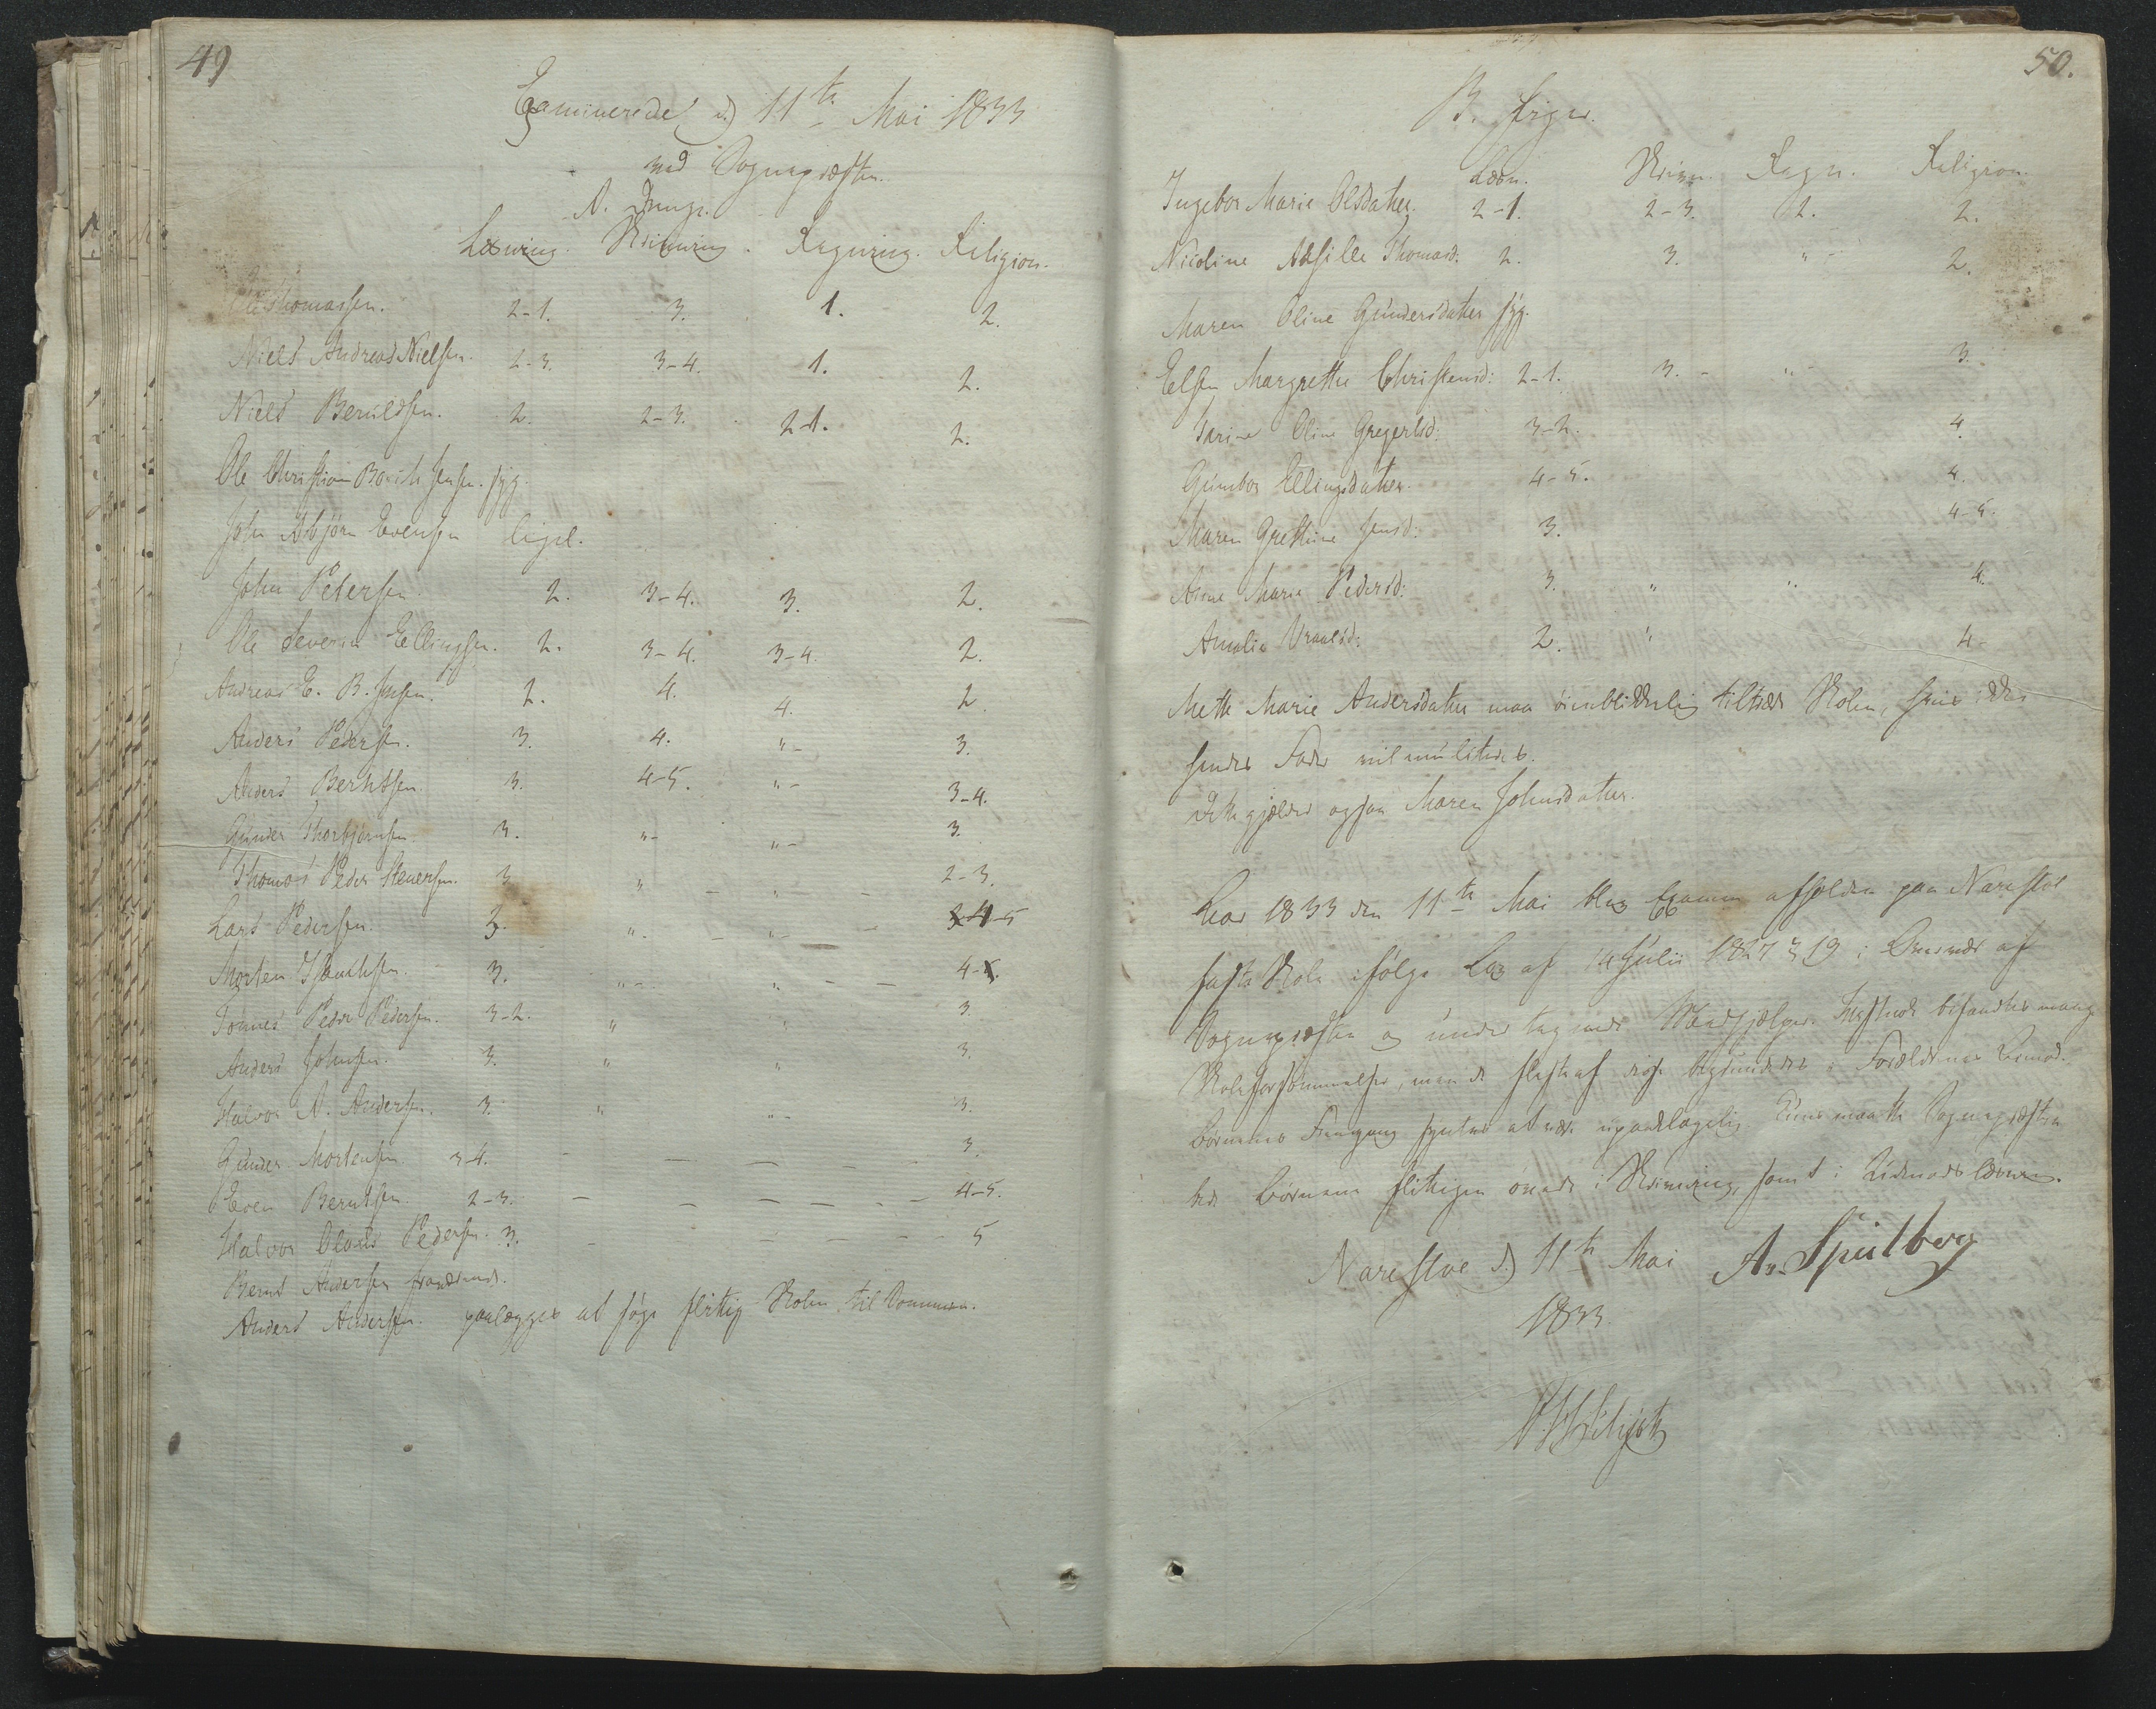 49
Examinerede d) 11te Mai 1833
ved Sognepræsten.
A. Drenge.
Læsning. Skrivning. Regning. Religion.
Ole Thomassen. 2-1. 3. 1. 2.
Niels Andreas Nielsen. 2-3. 3-4. 1. 2.
Niels Beruldsen. 2. 2-3. 2-1. 2.
Ole Christian Jensen. syg.
John Asbjørn Evensen ligel.
John Petersen 2. 3-4. 3. 2.
Ole Severin Ellingsen. 2. 3-4. 3-4. 2.
Andreas E. B. Jensen. 2. 4. 4. 2.
Anders Pedersen. 3. 4. " - 3.
Anders Berntsen. 3. 4-5. " - 3-4.
Gunder Thorbjørnsen. 3. " - " - 3.
Thomas Peder Stenersen. 3 " - " - 2-3.
Lars Pedersen. 3. " - " - 4-5
Morten 3. " - " - 4-5.
Tønnes Peder Pedersen. 3-2. " " 3.
Anders Johnsen. 3. " " 3.
Halvor A. Andersen. 3. " " - 3.
Gunder Mortensen 3-4. - - - - 3.
Even Berntsen. 2-3. - - - - 4-5.
Halvor Olaus Pedersen. 3. - - - - 5
Bernt Andersen fraværende.
Anders Andersen. paalægges at søge flittig Skolen til Sommeren.
50.
B. Piger.
Læsn. Skrivn. Regn. Religion.
Ingebor Marie Olsdatter. 2-1. 2-3. 2. 2.
Nicoline Thomasd: 2. 3. " - 2.
Maren Oline Gundersdatter syg.
Elsen Margrethe Christensd: 2-1. 3. - " - 3.
Oline Gregersd: 3-2. 4.
Gunbor Ellingsdatter. 4-5. 4.
Maren Grethine Jensd: 3. 4-5.
Anne Marie Pedersd: 3. " " 4.
Amalia 2. " 4-
Mette Marie Andersdatter maa øieblikkelig tiltræde Skolen, hvis ikke
hendes Fader vil mulcteres.
Dette gjælder ogsaa Maren Johnsdatter.
Aar 1833 den 11te Mai blev Examen afholden paa Narestøe
faste Skole ifølge Lov af 14 Julii 1827 § 19 i Overvær af
Sognepræsten og undertegnede Medhjælper. befandtes mange
Skoleforsømmelser, men de fleste af disse begrundede i Forældrenes Armod.
Børnenes Fremgang syntes at være upaaklagelig. Kuns maatte Sognepræsten
Børnene flittigen øvede i Skrivning, samt i Udenadslæsning.
Narestøe d) 11te Mai A. Spilberg
1833.